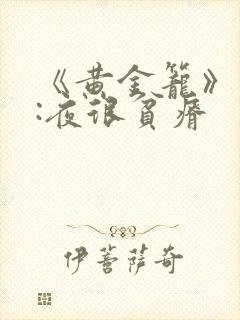 《黄金籠》
:夜很貧瘠
伊菩薩奇